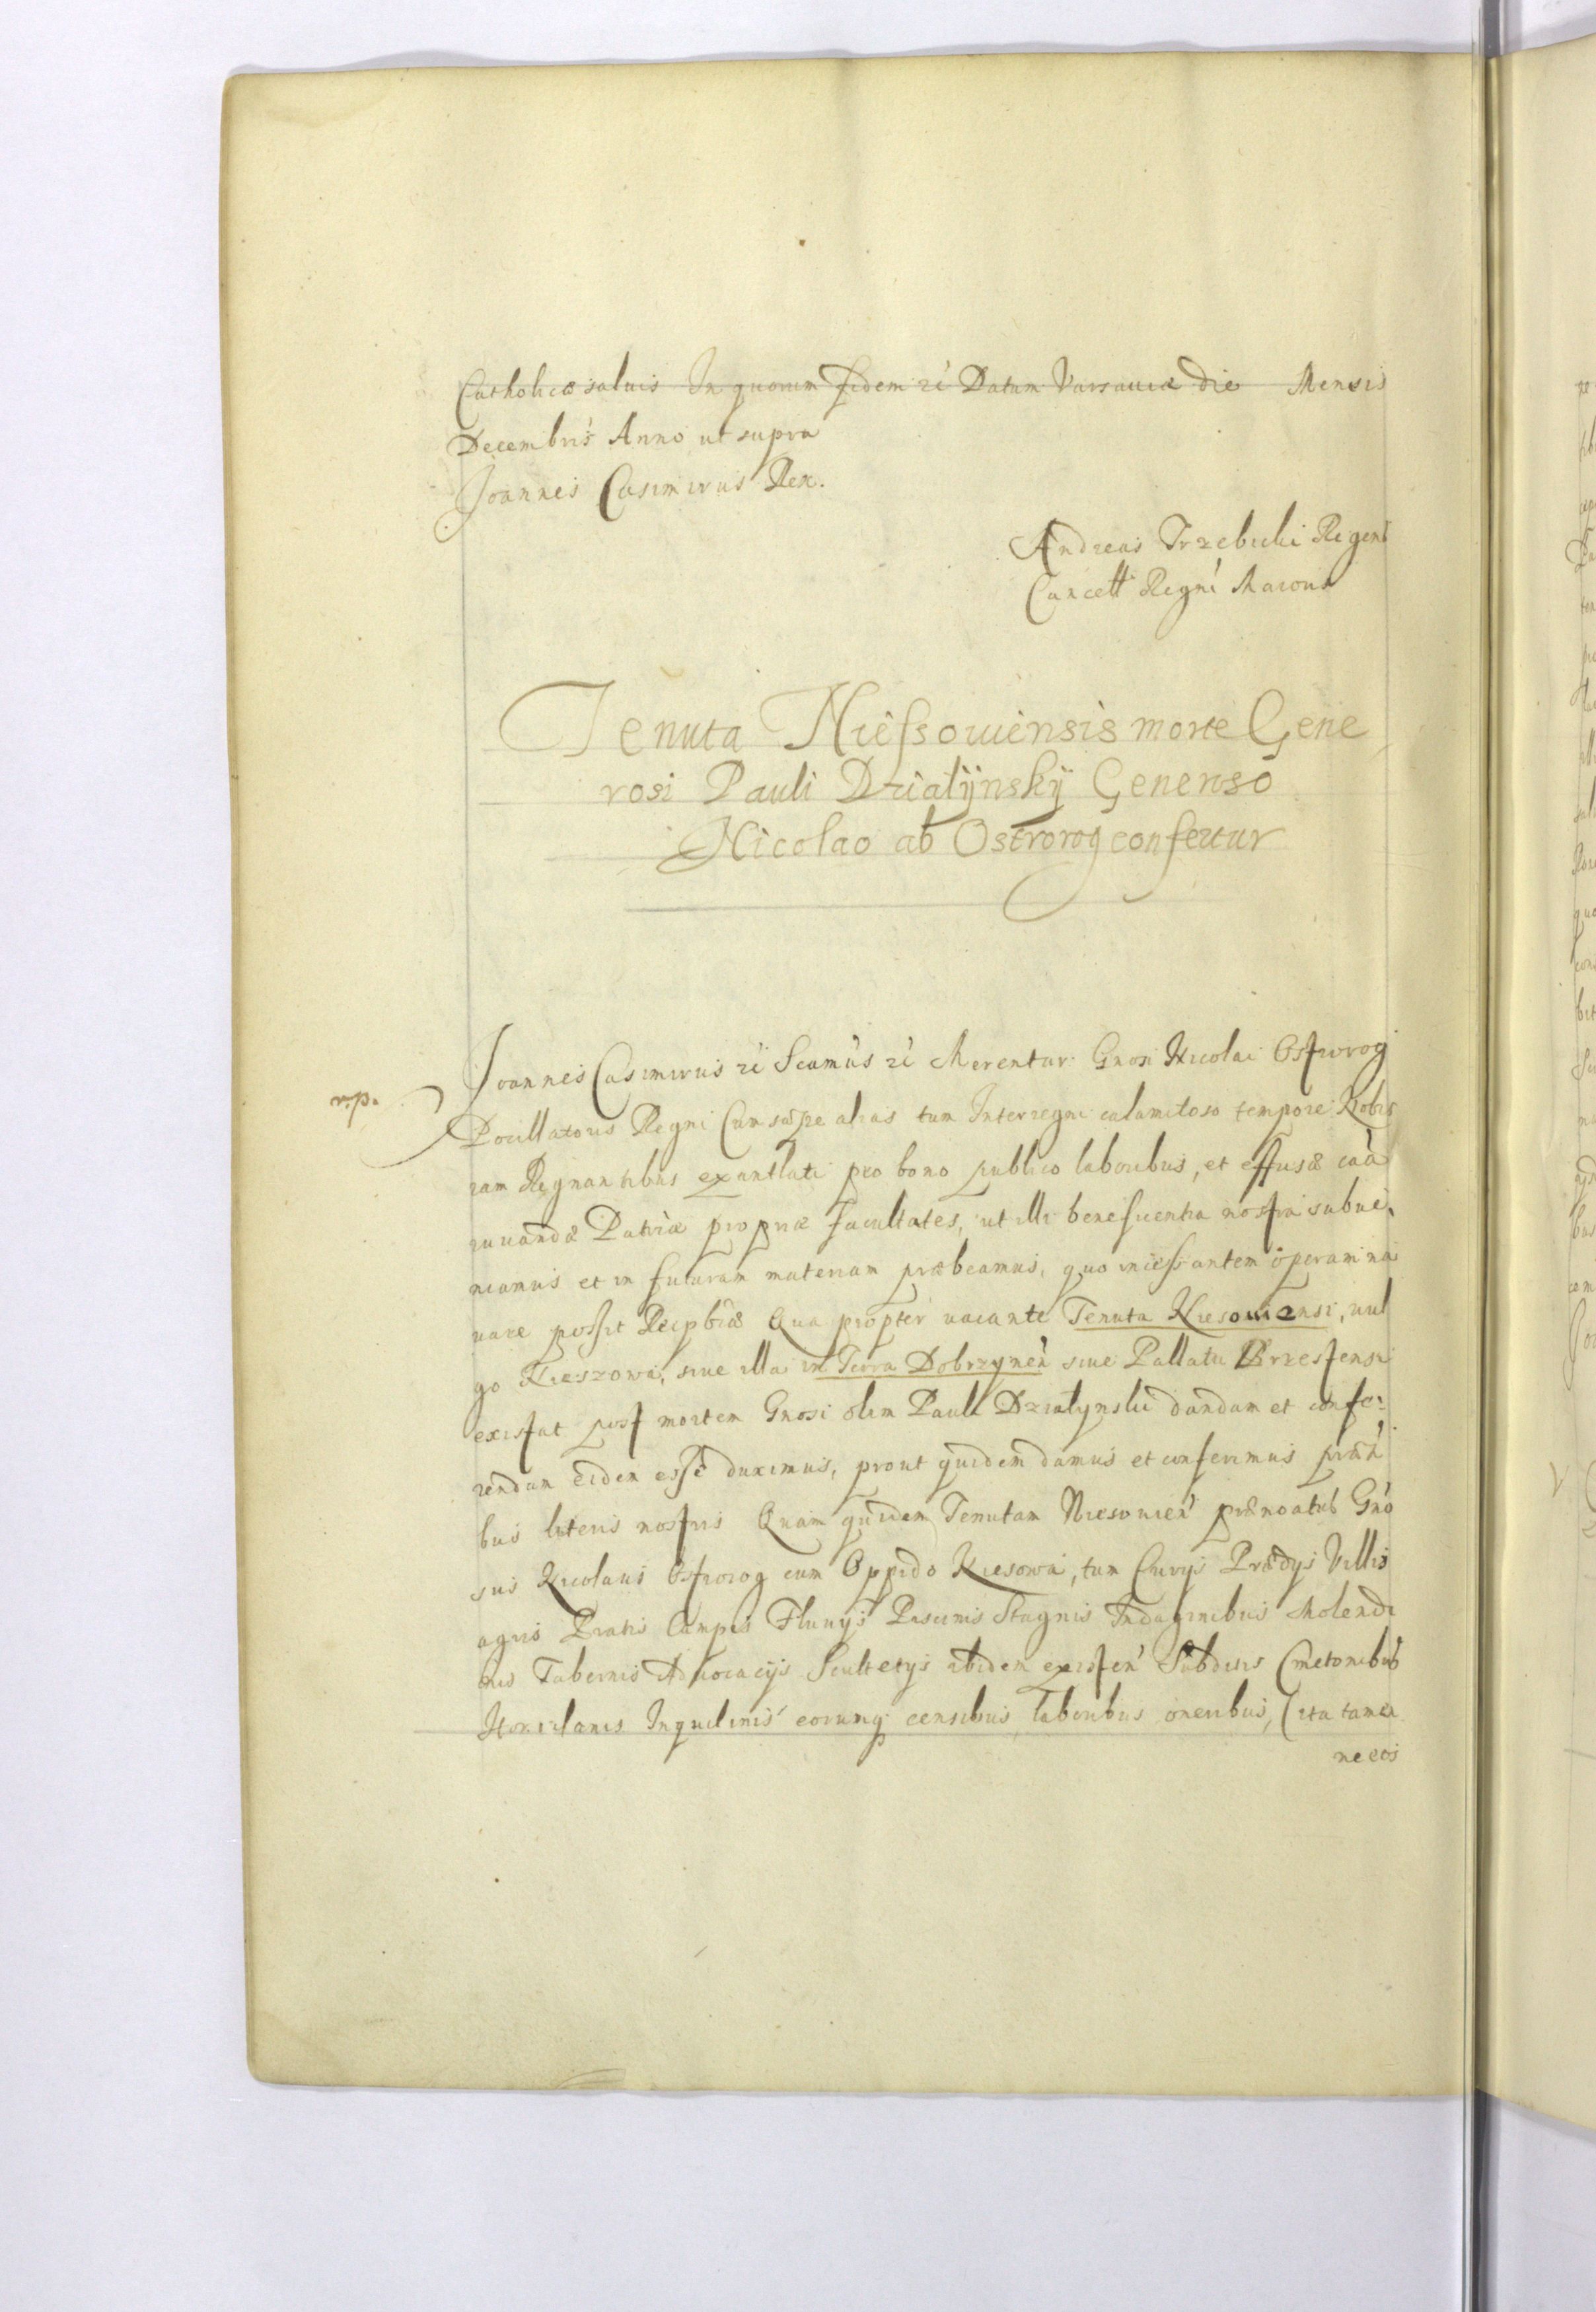 Catholicæ saluis In quorum fidem rć Datum Varsauiæ die Mensis
Decembris Anno ut supra
Joannes Casimirus Rex.
Andreas Trzebicki Regens
Cancell Regni
Tenuta Niessouiensis morte Gene
rosi Pauli Dzialÿnskÿ Generoso
Nicolao ab Ostrorog confertur
Joannes Casimirus rć Scimus rć Merentur Gnosi Nicolai Ostrorog
rp.
Pocillatoris Regni Cum sæpe alias tum Interregni calamitoso tempore Nobis
iam Regnantibus exantlati pro bono publico laboribus, et effusæ caā
iuuandæ Patriæ propriæ facultates, ut illi beneficentia nostra subue,
niamus et in futuram materiam præbeamus, quo incessantem operam na
uare possit Reipbæ Qua propter uacante Tenuta Niesouiensi, uul
go Nieszowa, siue illa in Terra Dobrzynen siue Pallatu Brzestensi
existat post mortem Gnosi olim Pauli Dzialynski dandam et confe:
rendam eidem esse duximus, prout quidem damus et conferimus præn
bus literis nostris Quam quidem Tenutam Niesouien prænoatus Gno
sus Nicolaus Ostrorog cum Oppido Niesowa, tum Curijs Prædijs Villis
agris Pratis Campis Fluuijs Pascuis Stagnis Indaginibus Molendi
nis Tabernis Aduocacijs Scultetijs ibidem existen Subditis Cmetonibus
Hortulanis Inquilinis eorumq censibus laboribus oneribus, (ita tamen
ne eos